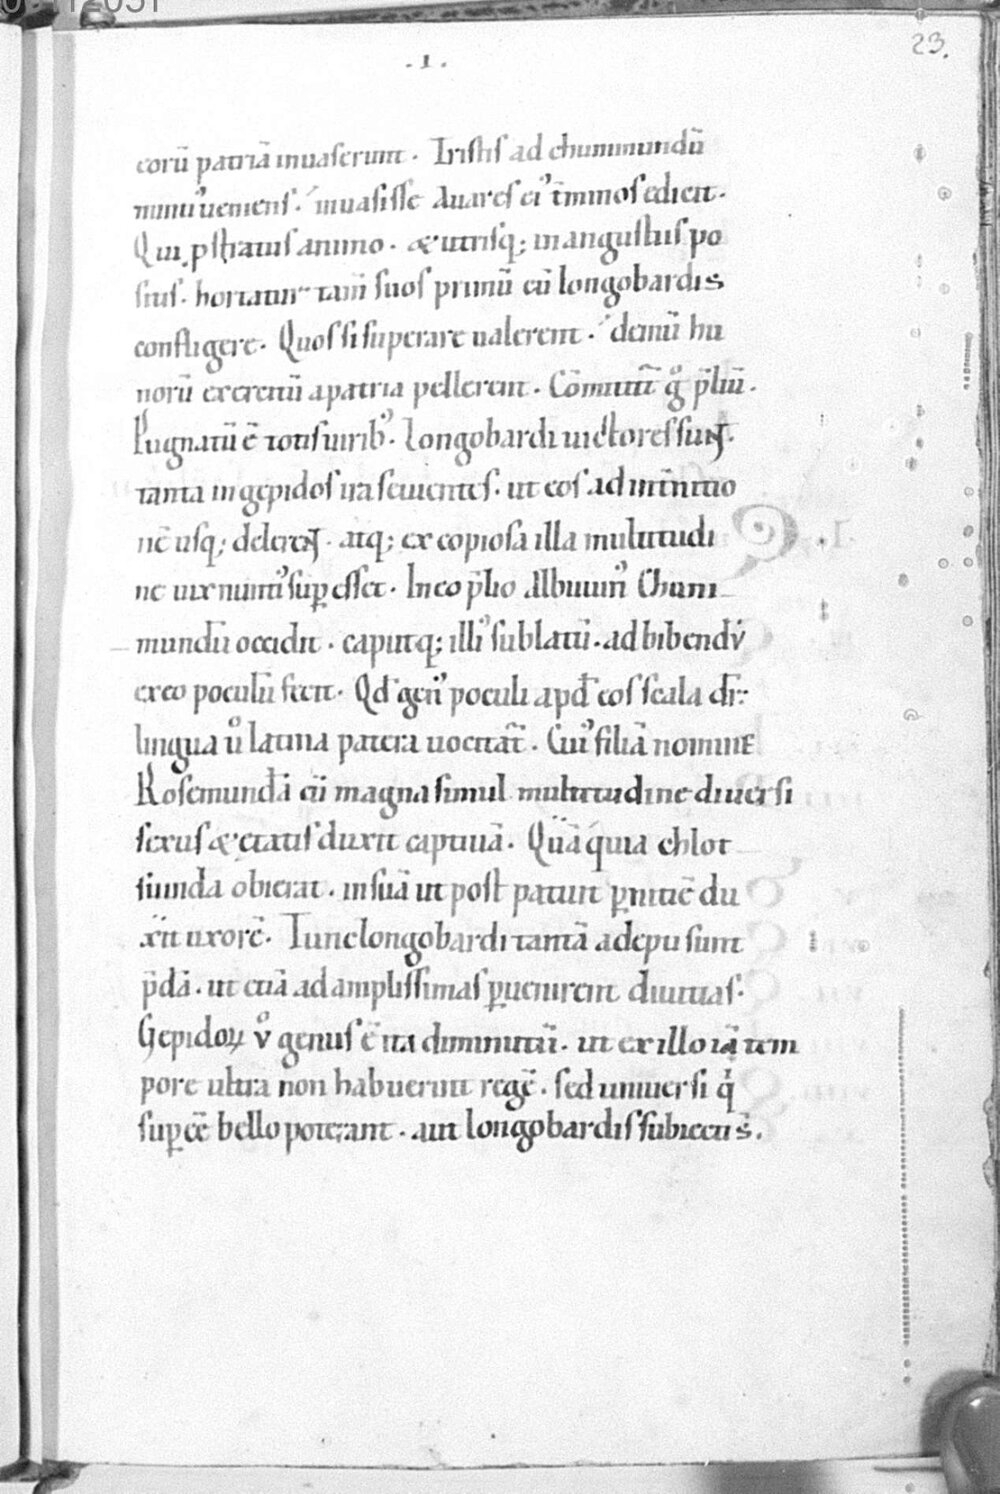 . I .
23.
corū patriā inuaserunt. Tristis ad chunimundū
nuntiꝰ ueniens. inuasisse Auares eiꝰ t̄minos edicit.
Qui ꝓstratus animo. & utrisq; in angustiis po
situs. hortatur tam̄ suos primū cū longobardis
confligere. Quos si superare ualerent. demū hu
norū exercitū a patria pellerent. Cōmittit̄ gͦ p̄liū.
Pugnatū ē totis uiribꝰ. Longobardi uictores sunt.
tanta in gepidos ira seuientes. ut eos ad int̄nitio
nē usq; delerent. atq; ex copiosa illa multitudi
ne uix nuntiꝰ suꝑesset. In eo p̄lio Albuuin̄ Chuni
mundū occidit. caputq; illiꝰ sublatū. ad bibendū
ex eo poculū fecit. Qd̄ genꝰ poculi apd̄ eos scala dr̄.
lingua uͦ latina patera uocitat̄. Cuiꝰ filiā nomine
Rosemundā cū magna simul multitudine diuersi
sexus & etatis duxit captiuā. Quā quia chlot
suinda obierat. in suā ut post patuit ꝑnitiē du
xit uxorē. Tunc longobardi tantā adepti sunt
p̄dā. ut etiā ad amplissimas ꝑuenirent diuitias.
Gepidoꝝ vͦ genus ē ita diminutū. ut ex illo iā tem
pore ultra non habuerint regē. sed uniuersi q̇
suꝑeē bello poterant. aut longobardis subiecti s̄.